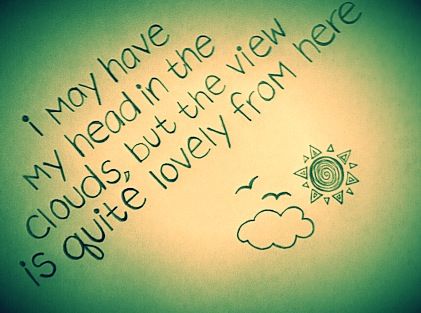 i may have
my head in the
clouds, but the view
is quite lovely from here